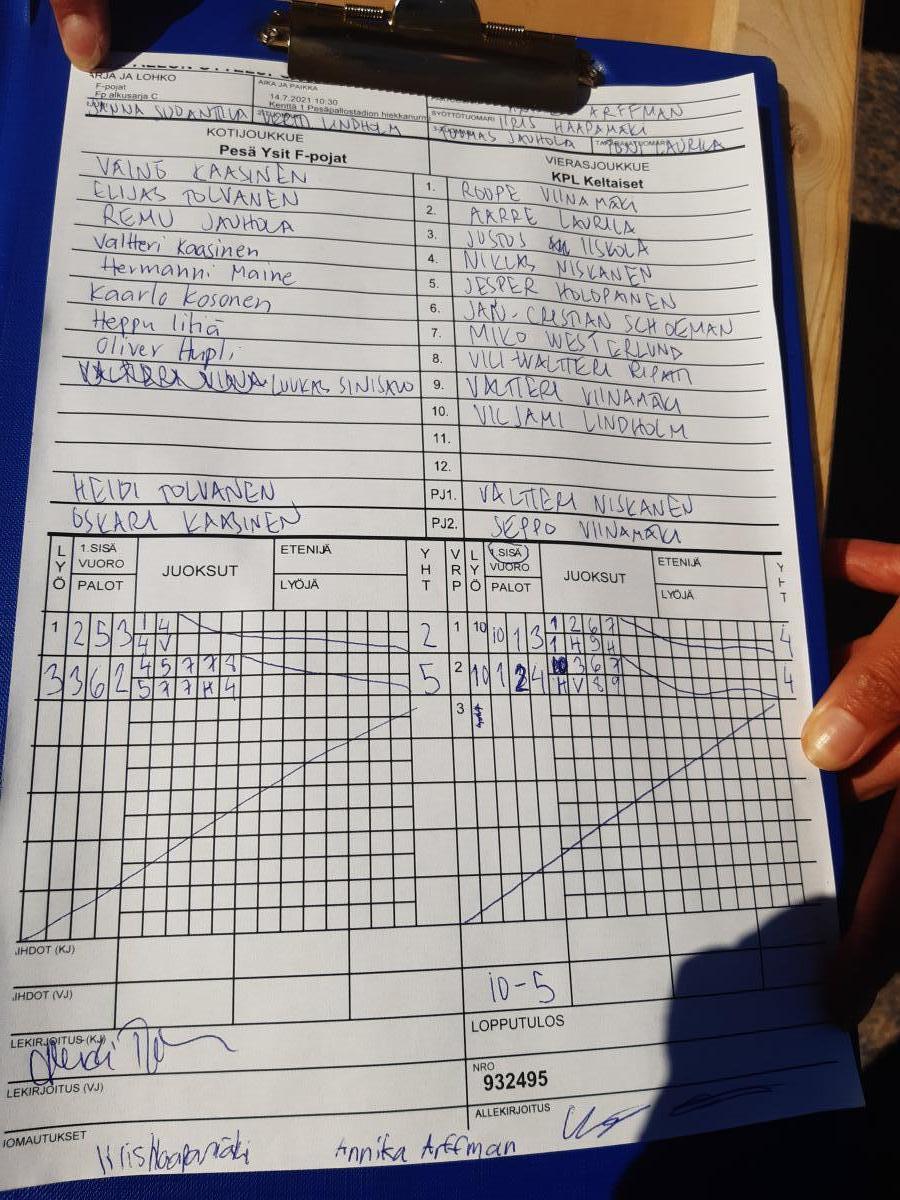 ARJA JA LOHKO
F-pojat
Fp alkusarja C
AIKA JA PAIKKA
14.7.2021 10:30
Kenttä 1 Pesäpallostadion hiekkanurm
ARFFMAN
SYÖTTÖTUOMARI IIRIS HAAPAMÄKI
LINDHOLM
TUOMAS JAUHOLA
TONI LAURILA
KOTIJOUKKUE
Pesä Ysit F-pojat
VIERASJOUKKUE
KPL Keltaiset
VÄINÖ KAASINEN 1. ROOPE VIINAMÄKI
ELIJAS TOLVANEN 2. AARRE LAURILA
REMU JAUHOLA 3. JUSTUS IISKOLA
Valtteri Kaasinen 4. NIKLAS NISKANEN
Hermanni Maine 5. JESPER HOLOPAINEN
Kaarlo Kosonen 6. JAN-CRISTIAN SCHOEMAN
Heppu Iihiä 7. MIKO WESTERLUND
Oliver Hupli 8. VILI-WALTTERI RIPATTI
LUUKAS SINISALO 9. VALTTERI VIINAMÄKI
10. VILJAMI LINDHOLM
11.
12.
HEIDI TOLVANEN PJ1. VALTTERI NISKANEN
OSKARI KAASINEN PJ2. SEPPO VIINAMÄKI
LYÖ 1.SISÄ VUORO PALOT JUOKSUT ETENIJÄ LYÖJÄ YHT VRP LYÖ 1.SISÄ VUORO PALOT JUOKSUT ETENIJÄ LYÖJÄ YHT
1 2 5 3 1 4 2 1 10 10 1 3 1 2 6 7 4
4 V 1 H 9 H
3 3 6 2 4 5 7 7 8 5 2 10 1 2 4 3 6 7 4
5 7 7 H 4 H V 8 9
3
JHDOT (KJ)
JHDOT (VJ)
10-5
LOPPUTULOS
LEKIRJOITUS (KJ)
NRO
932495
LEKIRJOITUS (VJ)
ALLEKIRJOITUS
IOMAUTUKSET
Iiris Haapamäki Annika Arffman